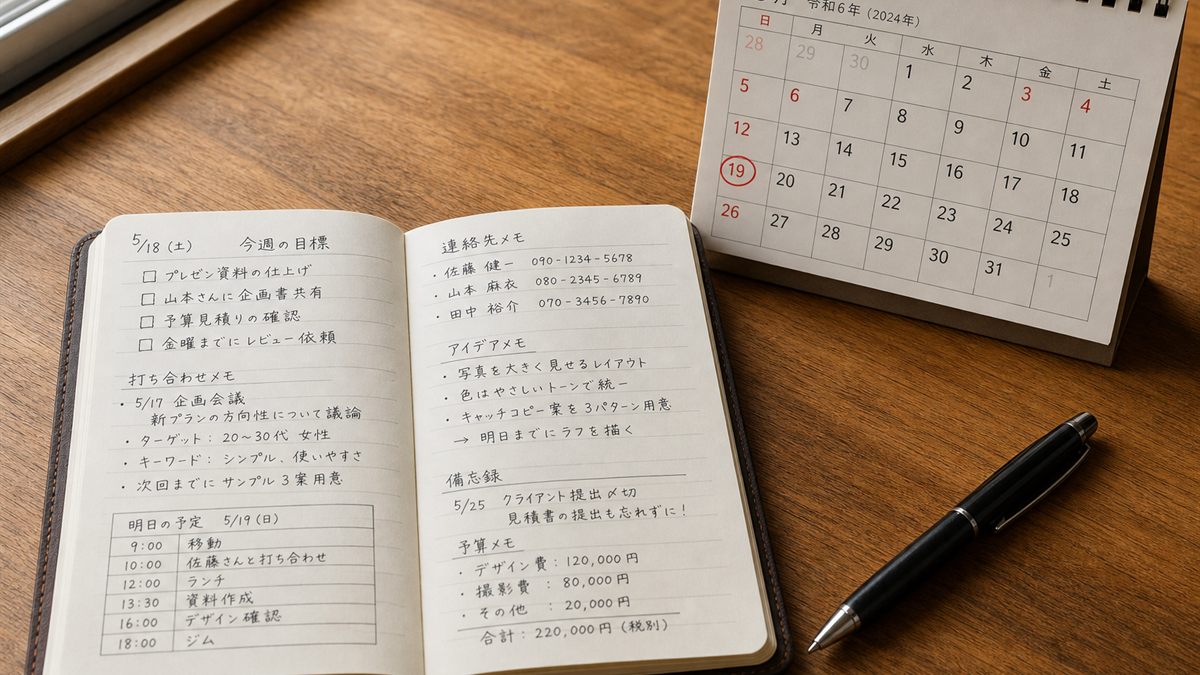 5/18(土) 今週の目標
□ プレゼン資料の仕上げ
□ 山本さんに企画書共有
□ 予算見積りの確認
□ 金曜までにレビュー依頼
打ち合わせメモ
・5/17 企画会議
新プランの方向性について議論
・ターゲット: 20〜30代 女性
・キーワード: シンプル、使いやすさ
・次回までに サンプル 3案用意
明日の予定 5/19(日)
9:00 移動
10:00 佐藤さんと打ち合わせ
12:00 ランチ
13:30 資料作成
16:00 デザイン確認
18:00 ジム
連絡先メモ
・佐藤 健一 090-1234-5678
・山本 麻衣 080-2345-6789
・田中 裕介 070-3456-7890
アイデアメモ
・写真を大きく見せるレイアウト
・色はやさしいトーンで統一
・キャッチコピー案を3パターン用意
→ 明日までにラフを描く
備忘録
5/25 クライアント提出〆切
見積書の提出も忘れずに!
予算メモ
・デザイン費: 120,000円
・撮影費: 80,000円
・その他: 20,000円
合計: 220,000円(税別)
月 令和6年(2024年)
日 月 火 水 木 金 土
28 29 30 1 2 3 4
5 6 7 8 9 10 11
12 13 14 15 16 17 18
19 20 21 22 23 24 25
26 27 28 29 30 31 1